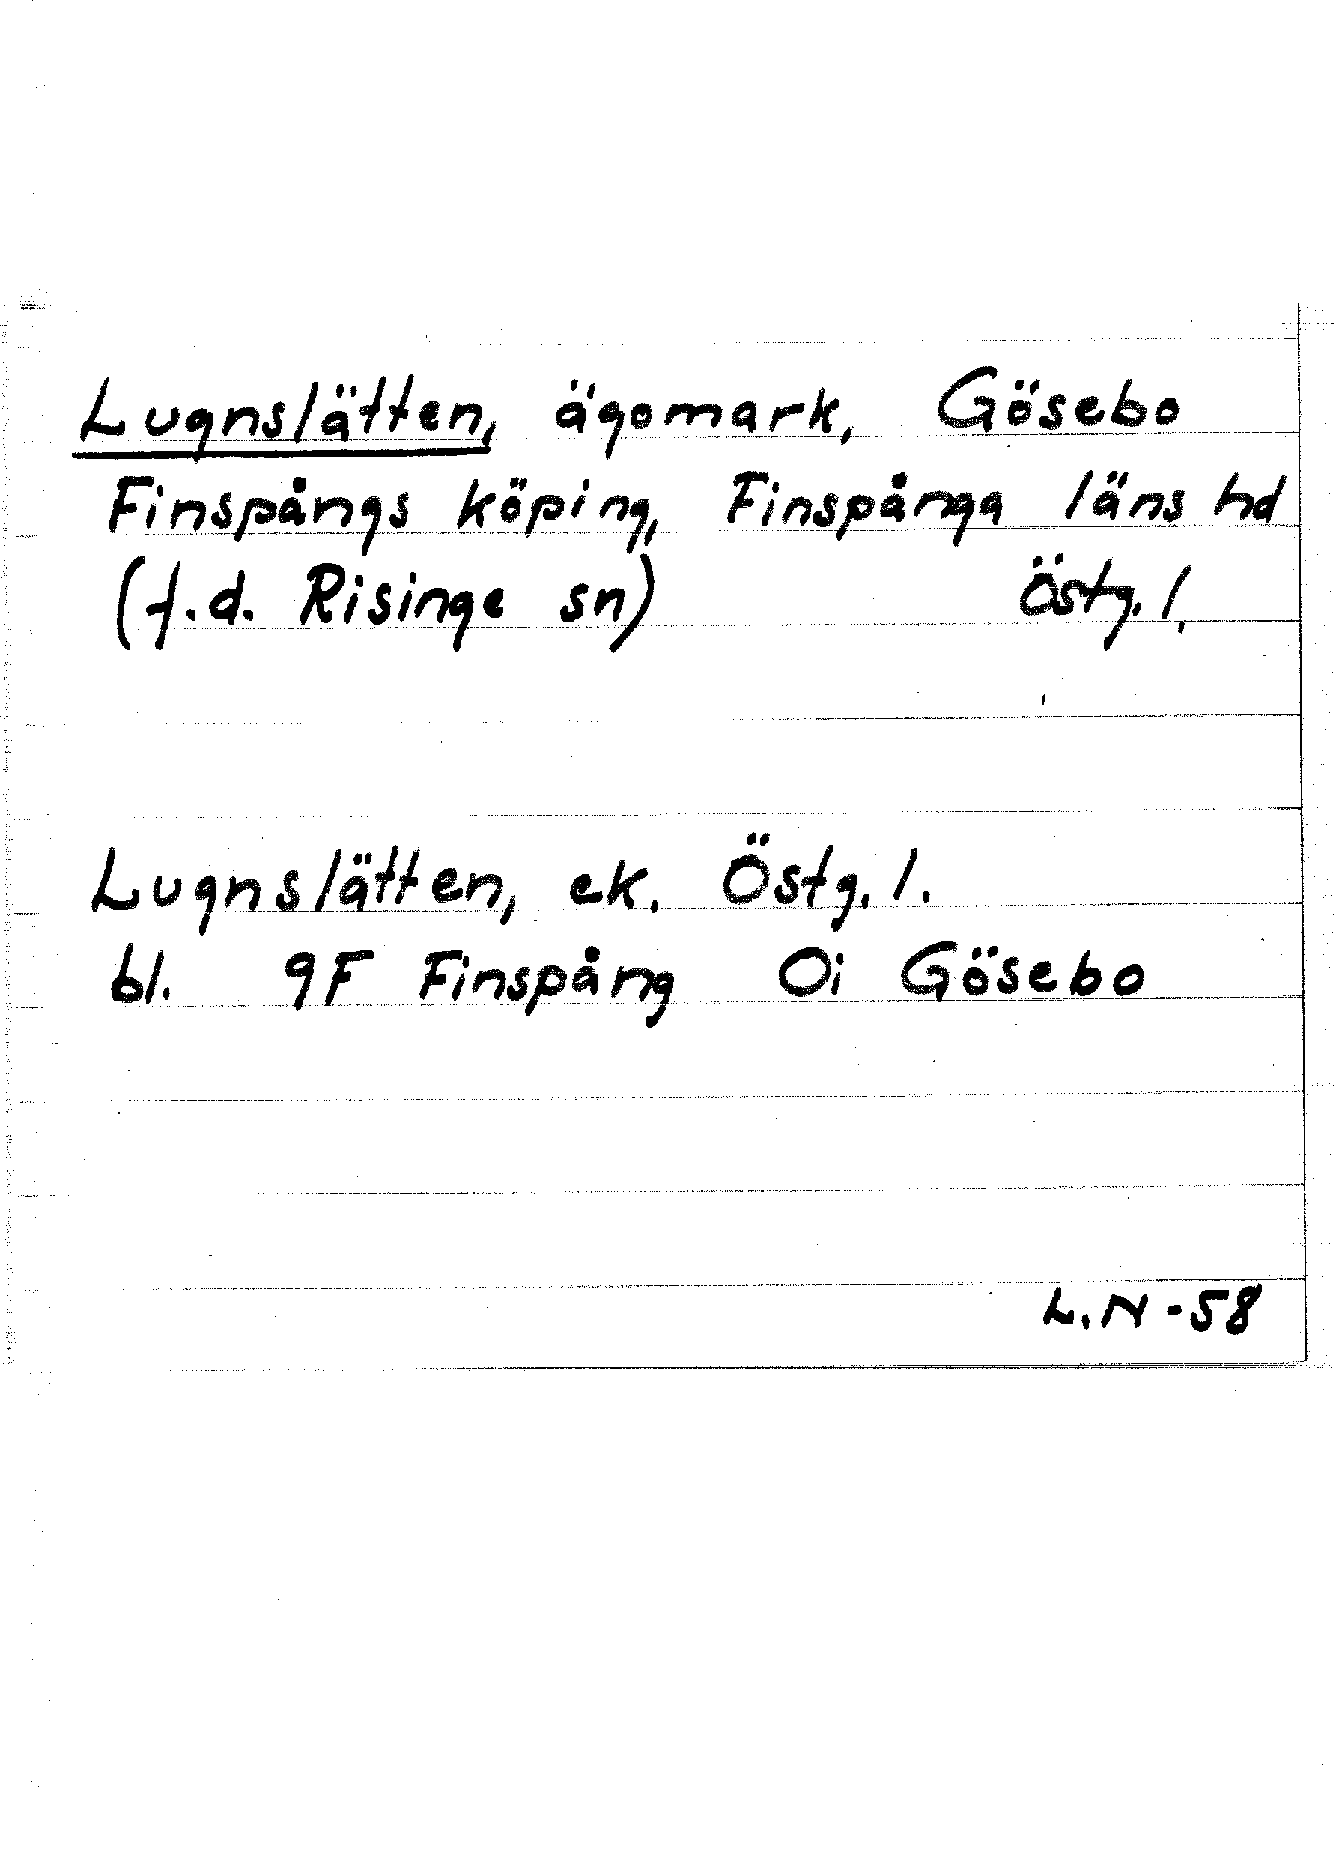 Lugnslätten, ägomark, Gösebo
Finspångs köping, Finspånga läns hd
(f.d. Risinge sn) Östg. l.
Lugnslätten, ek. Östg. l.
bl. 9F Finspång 0i Gösebo
L. N - 58